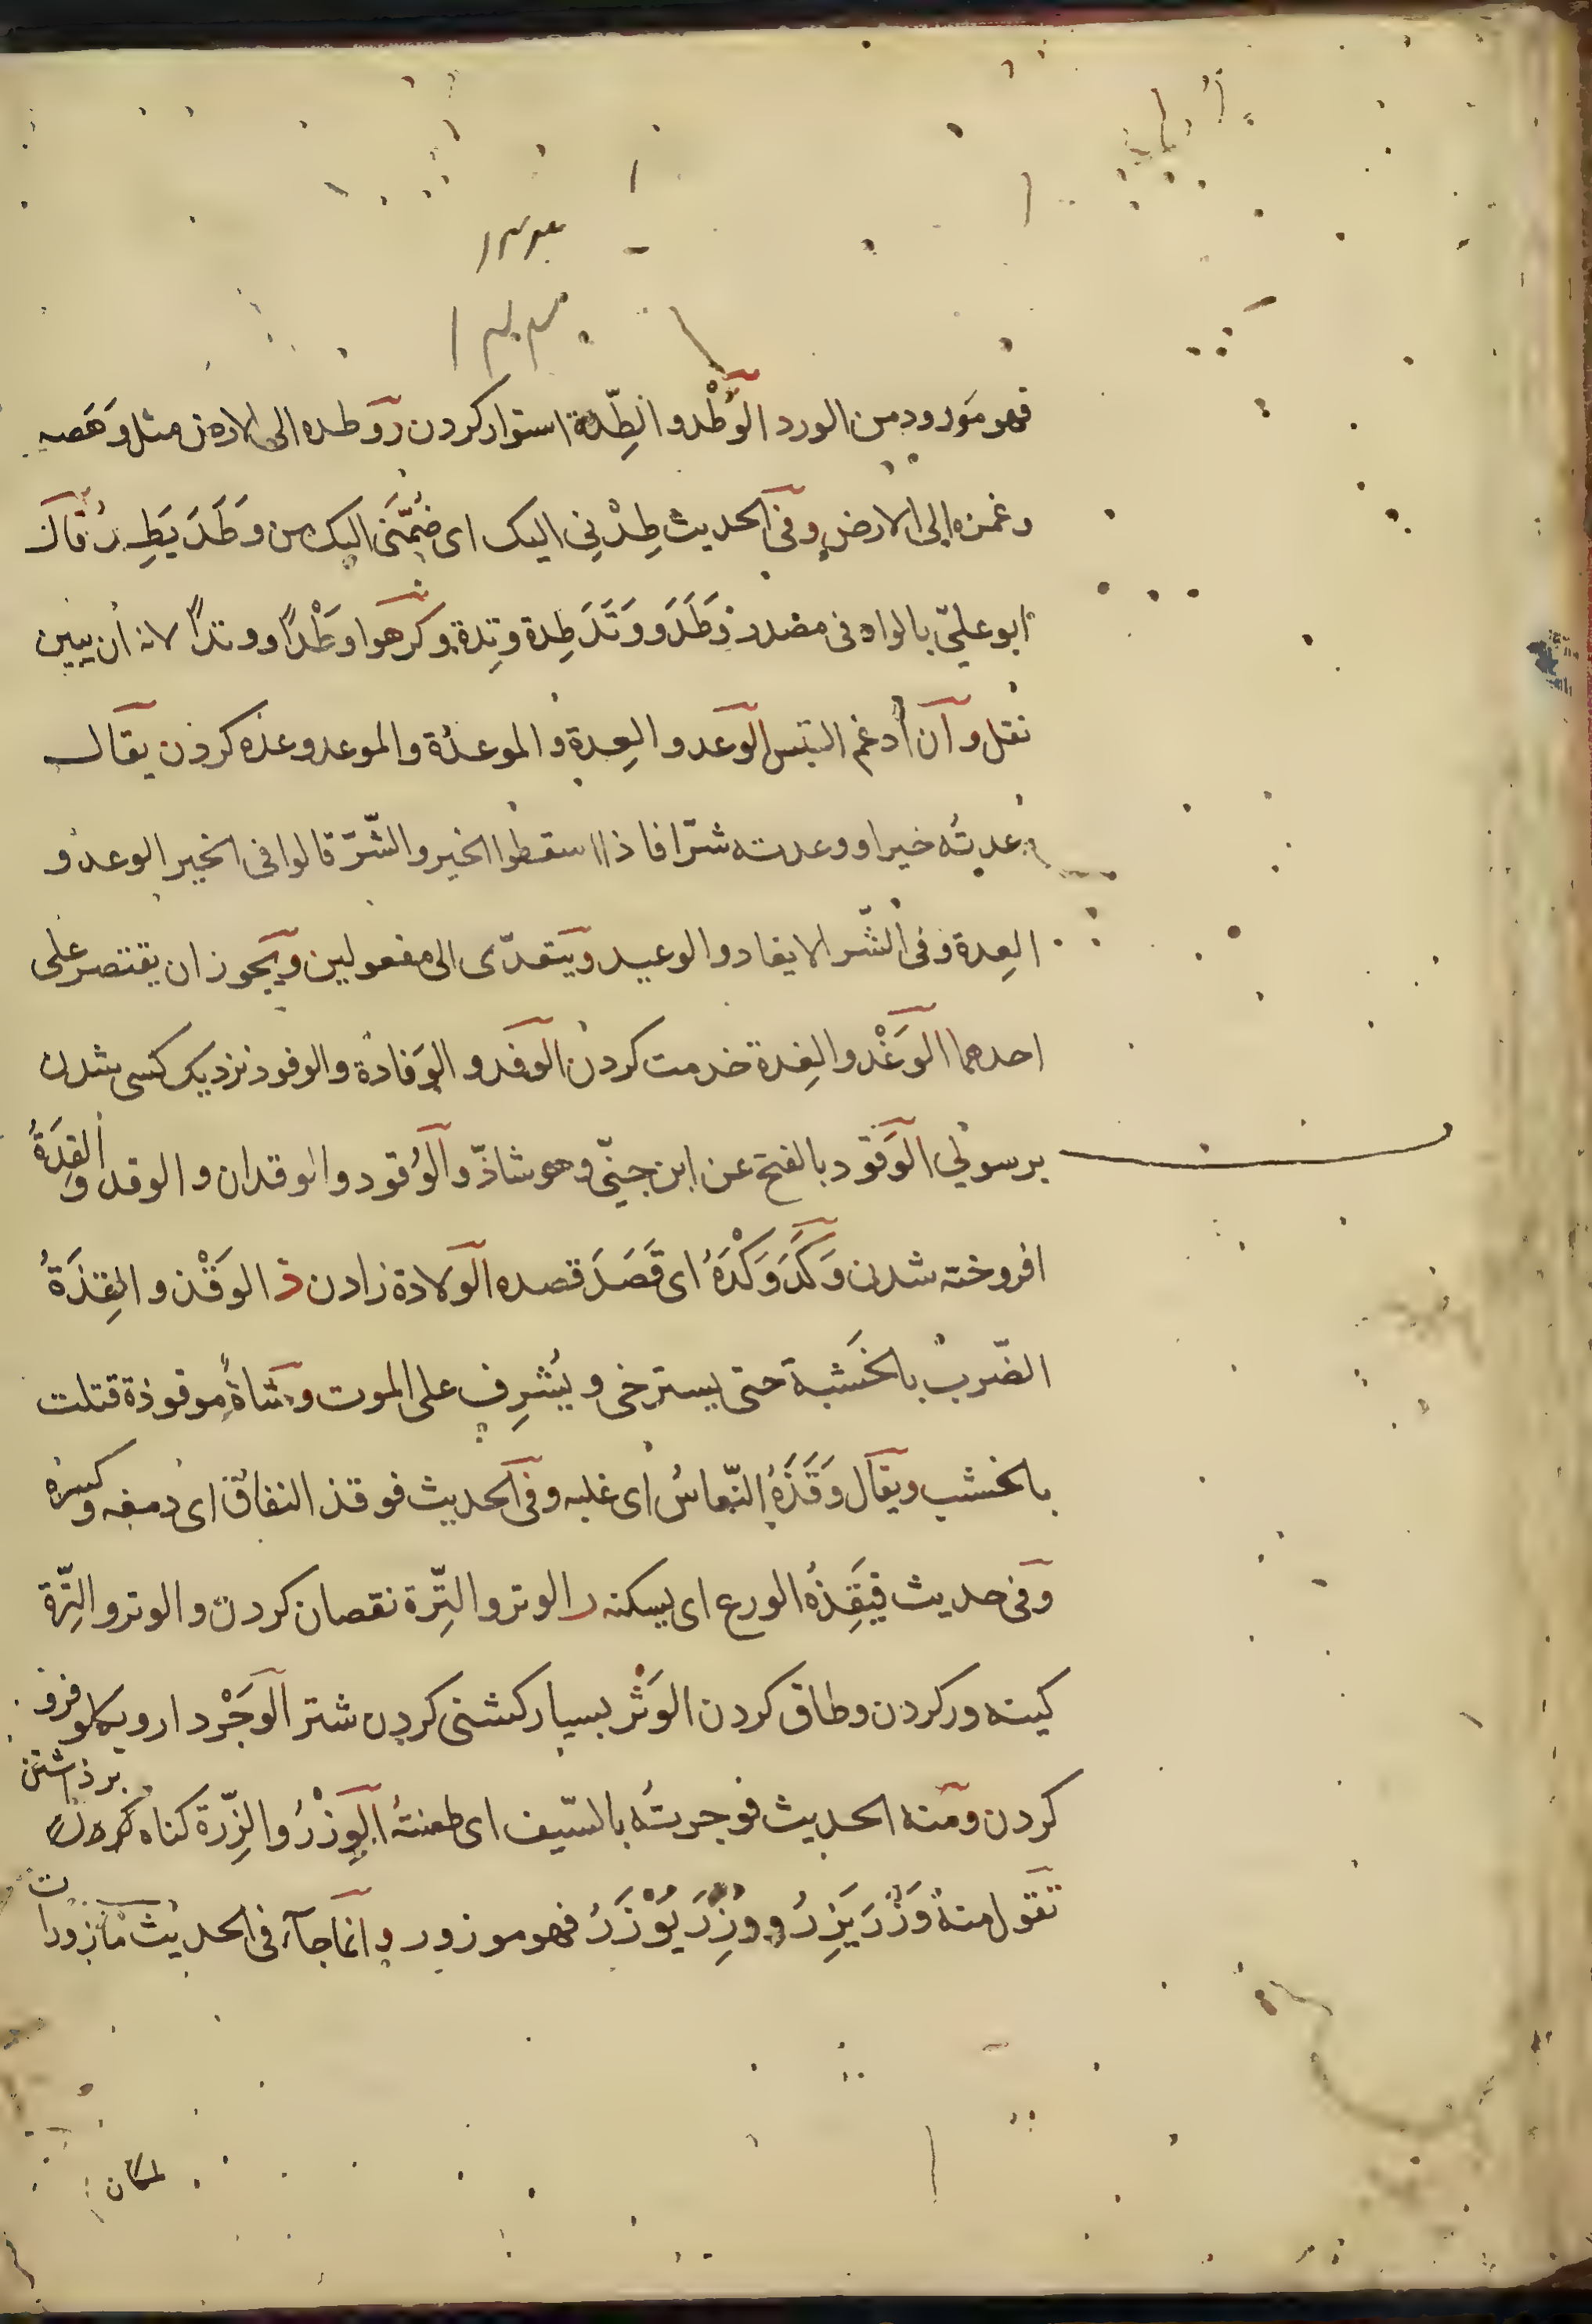 فهو مَورود من الورد الوَطْد و الطِّدة استوار كردن و وطده الى الارض مثل وَهَصه
و غمزه الى الارض و فى الحديث طِدْنِى اليك اى ضُمَّنِى اليك من وَطَدَ يَطِدُ قال
ابو علىّ بالواو فى مصدر وَطَدَ و وَتَدَ طِدة و تِدة و كرهوا وَطْدًا و وتدًا لانه أن يبين
ثقل و ان أدغم التبس الوَعد و العِدة و الموعدة و الموعد وعده كردن يقال
وعدته خيرا و وعدته شرّا فاذا اسقطوا الخير و الشّرّ قالوا فى الخير الوعد و
العِدة و فى الشّر الايعاد و الوعيد و يتعدّى الى مفعولين و يجوز ان يقتصر على
احدهما الوَغْد و الغِدة خدمت كردن الوَفد و الوَفادة و الوفود نزديك كسى شدن
برسولى الوَقود بالفتح عن ابن جنّى و هو شاذّ و الوُقود و الوقدان و الوقد و القِدَةُ
افروخته شدن وَكَدَ وَكْدَهُ اى قَصَدَ قصده الولادة زادن ذ الوَقْذ و القِذَةُ
الضّربُ بالخَشبة حتى يسترخى و يُشرِف على الموت و شاةٌ موقوذة قتلت
بالخشب و يقال وَقَذَهُ النّعاسُ اى غلبه و فى الحديث فوقذ النفاق اى دمغه و كسره
و فى حديث فيَقِذُهُ الورع اى يسكنه ر الوتر و التِّرة نقصان كردن و الوتر و التِّرة
كينه ور كردن و طاق كردن الوَثْر بسيار كشنى كردن شتر الوَجْر دارو بكلو فرو
كردن و منه الحديث فوجرتُه بالسّيف اى طعنتُهُ الوِزْرُ و الزِّرة كناه كردن بر ذاشتن
تقول منه وَزَرَ يَزِرُ و وُزِرَ يُوْزَرُ فهو موزور و انما جآء فى الحديث مأزورات
لمكان